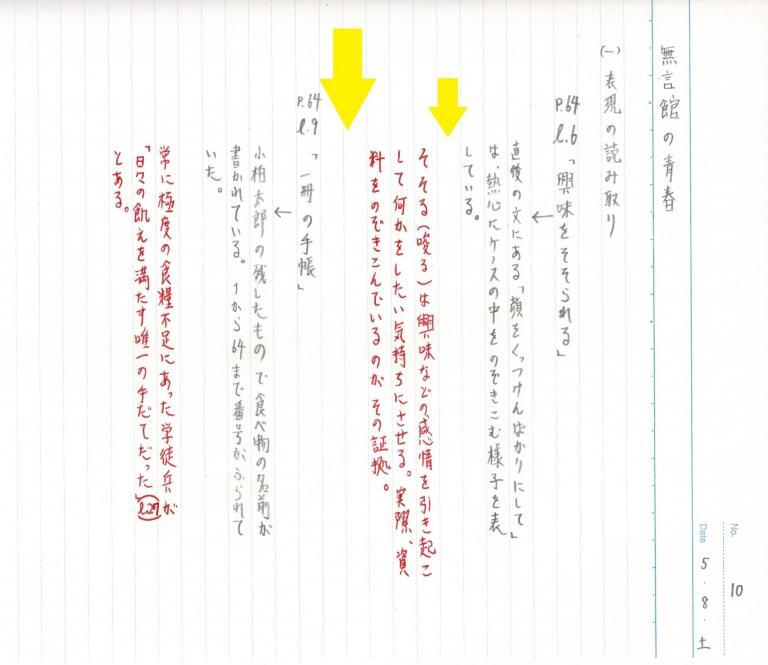 No. 10
Date 5・8・土
無言館の青春
(一) 表現の読み取り
P.64 l.6「興味をそそられる」
直後の文にある「顔をくっつけんばかりにして」
は、熱心にケースの中をのぞきこむ様子を表
している。
そそる(唆る)は興味などの感情を引き起こ
して何かをしたい気持ちにさせる。実際、資
料をのぞきこんでいるのがその証拠。
P.64 l.9「一冊の手帳」
小柏太郎の残したもので食べ物の名前が
書かれている。1から64まで番号がふられて
いた。
常に極度の食糧不足にあった学徒兵が
「日々の飢えを満たす唯一の手だてだった」l.27
とある。